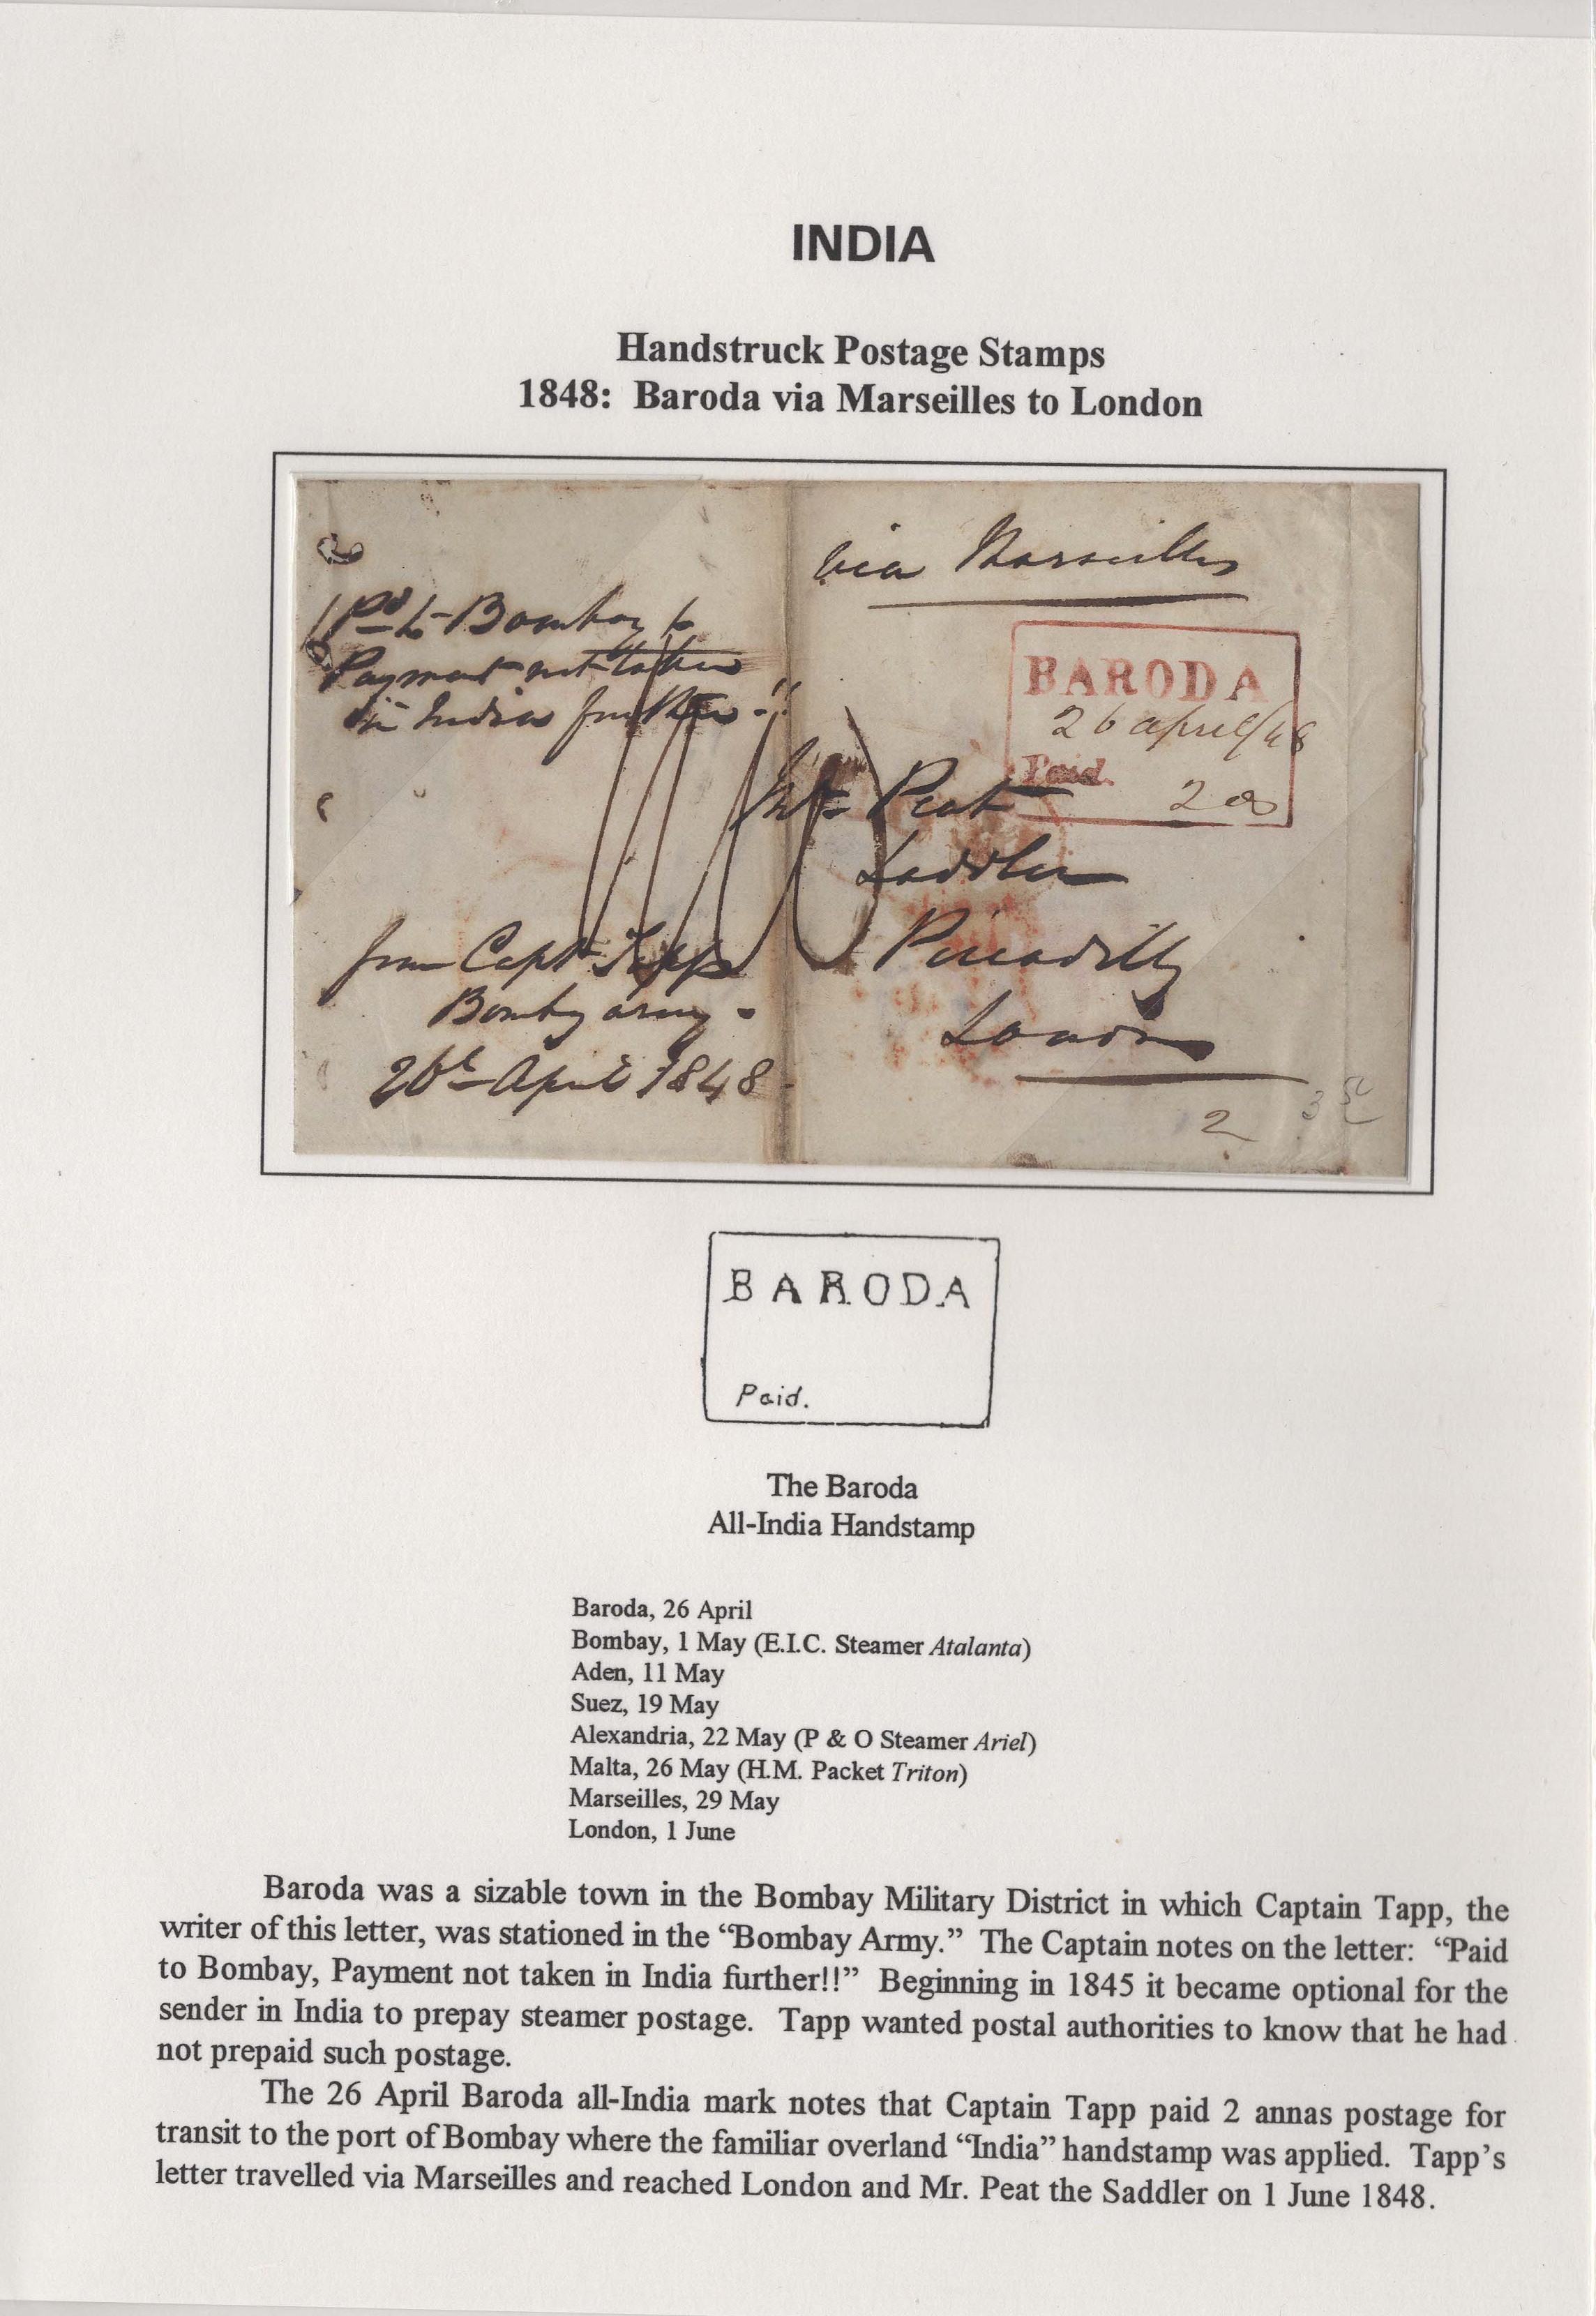 INDIA
Handstruck Postage Stamps
1848: Baroda via Marseilles to London
via Marseilles
Pd to Bombay
Payment not taken
in India further - !!
BARODA
26 april/48
Paid.
2 as
Peat
Saddler
Piccadilly
London
from Capt Tapp
Bombay army -
26t April 1848 -
2
BARODA
Paid.
The Baroda
All-India Handstamp
Baroda, 26 April
Bombay, 1 May (E.I.C. Steamer Atalanta)
Aden, 11 May
Suez, 19 May
Alexandria, 22 May (P & O Steamer Ariel)
Malta, 26 May (H.M. Packet Triton)
Marseilles, 29 May
London, 1 June
Baroda was a sizable town in the Bombay Military District in which Captain Tapp, the
writer of this letter, was stationed in the “Bombay Army.” The Captain notes on the letter: “Paid
to Bombay, Payment not taken in India further!!” Beginning in 1845 it became optional for the
sender in India to prepay steamer postage. Tapp wanted postal authorities to know that he had
not prepaid such postage.
The 26 April Baroda all-India mark notes that Captain Tapp paid 2 annas postage for
transit to the port of Bombay where the familiar overland “India” handstamp was applied. Tapp’s
letter travelled via Marseilles and reached London and Mr. Peat the Saddler on 1 June 1848.